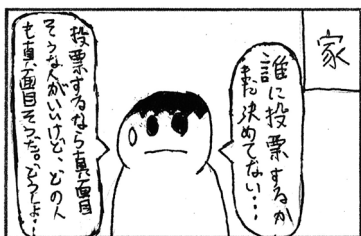 家
誰に投票するか
まだ決めてない…
投票するなら真面目
そうな人がいいけど、どの人
も真面目そうだ。どうしよ…